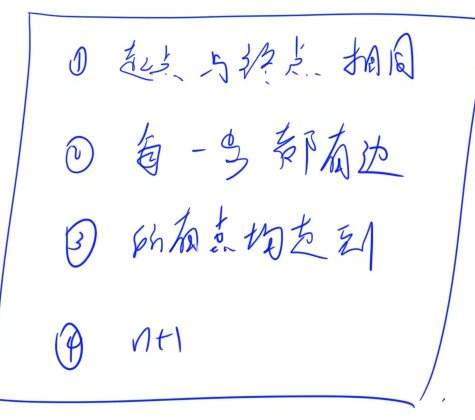 ① 起点与终点相同
② 每一步都有边
③ 所有点均走到
④ n+1